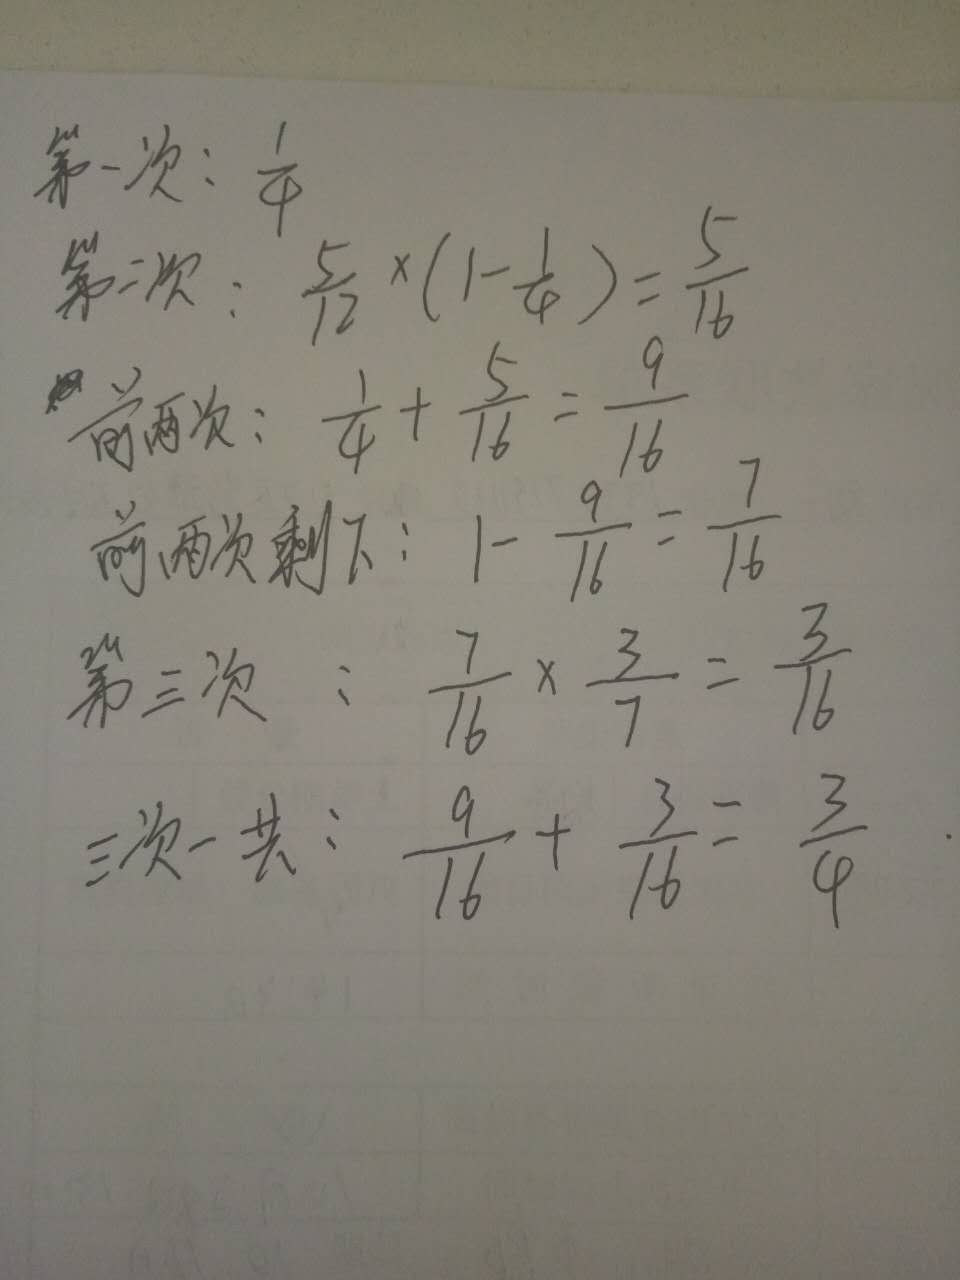 第一次: 1/4
第二次: 5/12 × (1 - 1/4) = 5/16
前两次: 1/4 + 5/16 = 9/16
前两次剩下: 1 - 9/16 = 7/16
第三次: 7/16 × 3/7 = 3/16
三次一共: 9/16 + 3/16 = 3/4